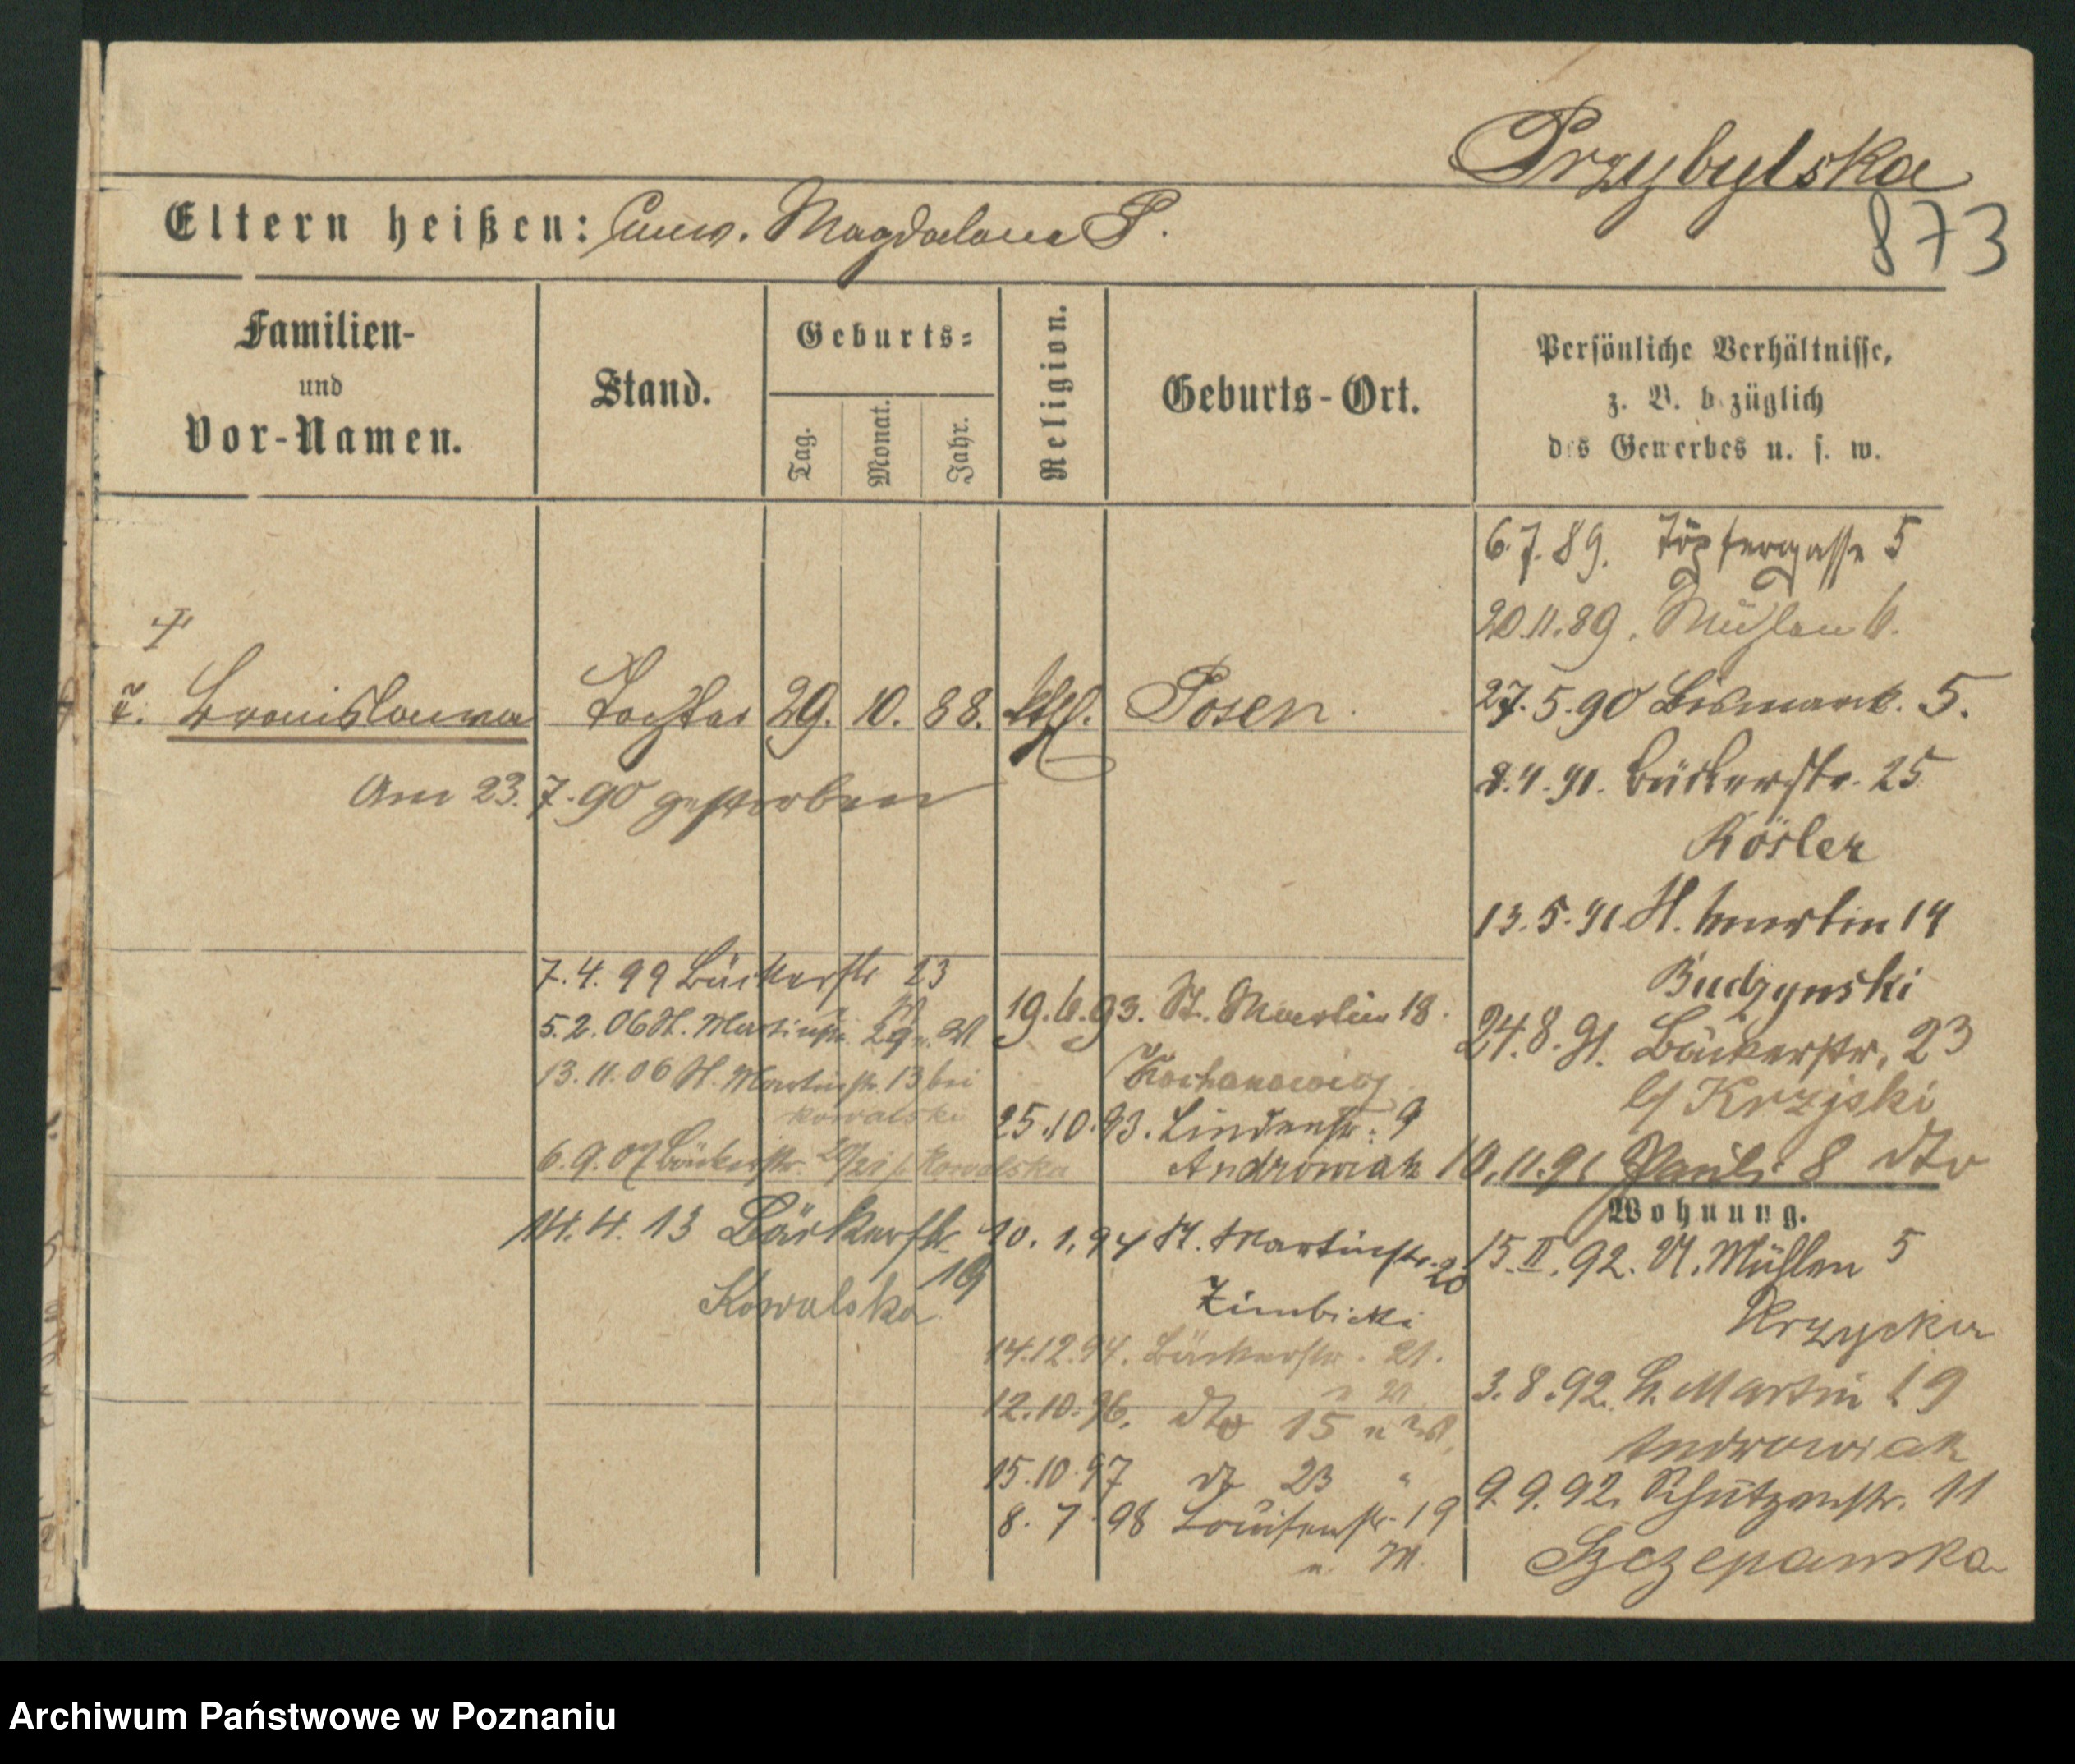 Przybylska
873
Eltern heißen: unv. Magdalena P.
Familien-
und
Vor-Namen.
Stand.
Geburts-
Tag.
Monat.
Jahr.
Religion.
Geburts-Ort.
Persönliche Verhältnisse,
z. B. b züglich
des Gewerbes u. s. w.
Bronislawa Tochter 29. 10. 88. kthl. Posen.
Am 23.7.90 gestorben
6.7.89. Töpfergasse 5
20.11.89. Mühlen 6.
27.5.90 Bismarck. 5.
2.4.91. Bäckerstr. 25
Kösler
13.5.91 St. Martin 14
Budzynski
24.8.91. Bäckerstr. 23
b/ Krzyski
10.11.91 Pauli 8 dto
Wohnung.
15.II.92. Mühlen 5
Krzycka
3.8.92. St. Martin 19
Androwiak
9.9.92. Schützenstr. 11
Szczepanska
7.4.99 Bäckerstr 23
5.2.06 St. Martinstr. 29
13.11.06 St. Martinstr. 13 bei
Kowalski
6.9.07 Bäckerstr. Kowalska
14.4.13 Bäckerstr.
19
Kowalska
19.6.93. St. Martin 18.
Kochanowicz
25.10.93. Lindenstr. 9
Androwiak
10.1.94 St. Martinstr. 20
Zimbicki
14.12.94. Bäckerstr. 21.
12.10.96. dto 15
15.10.97 dt 23 "
8.7.98 Louisenstr. 19
Archiwum Państwowe w Poznaniu